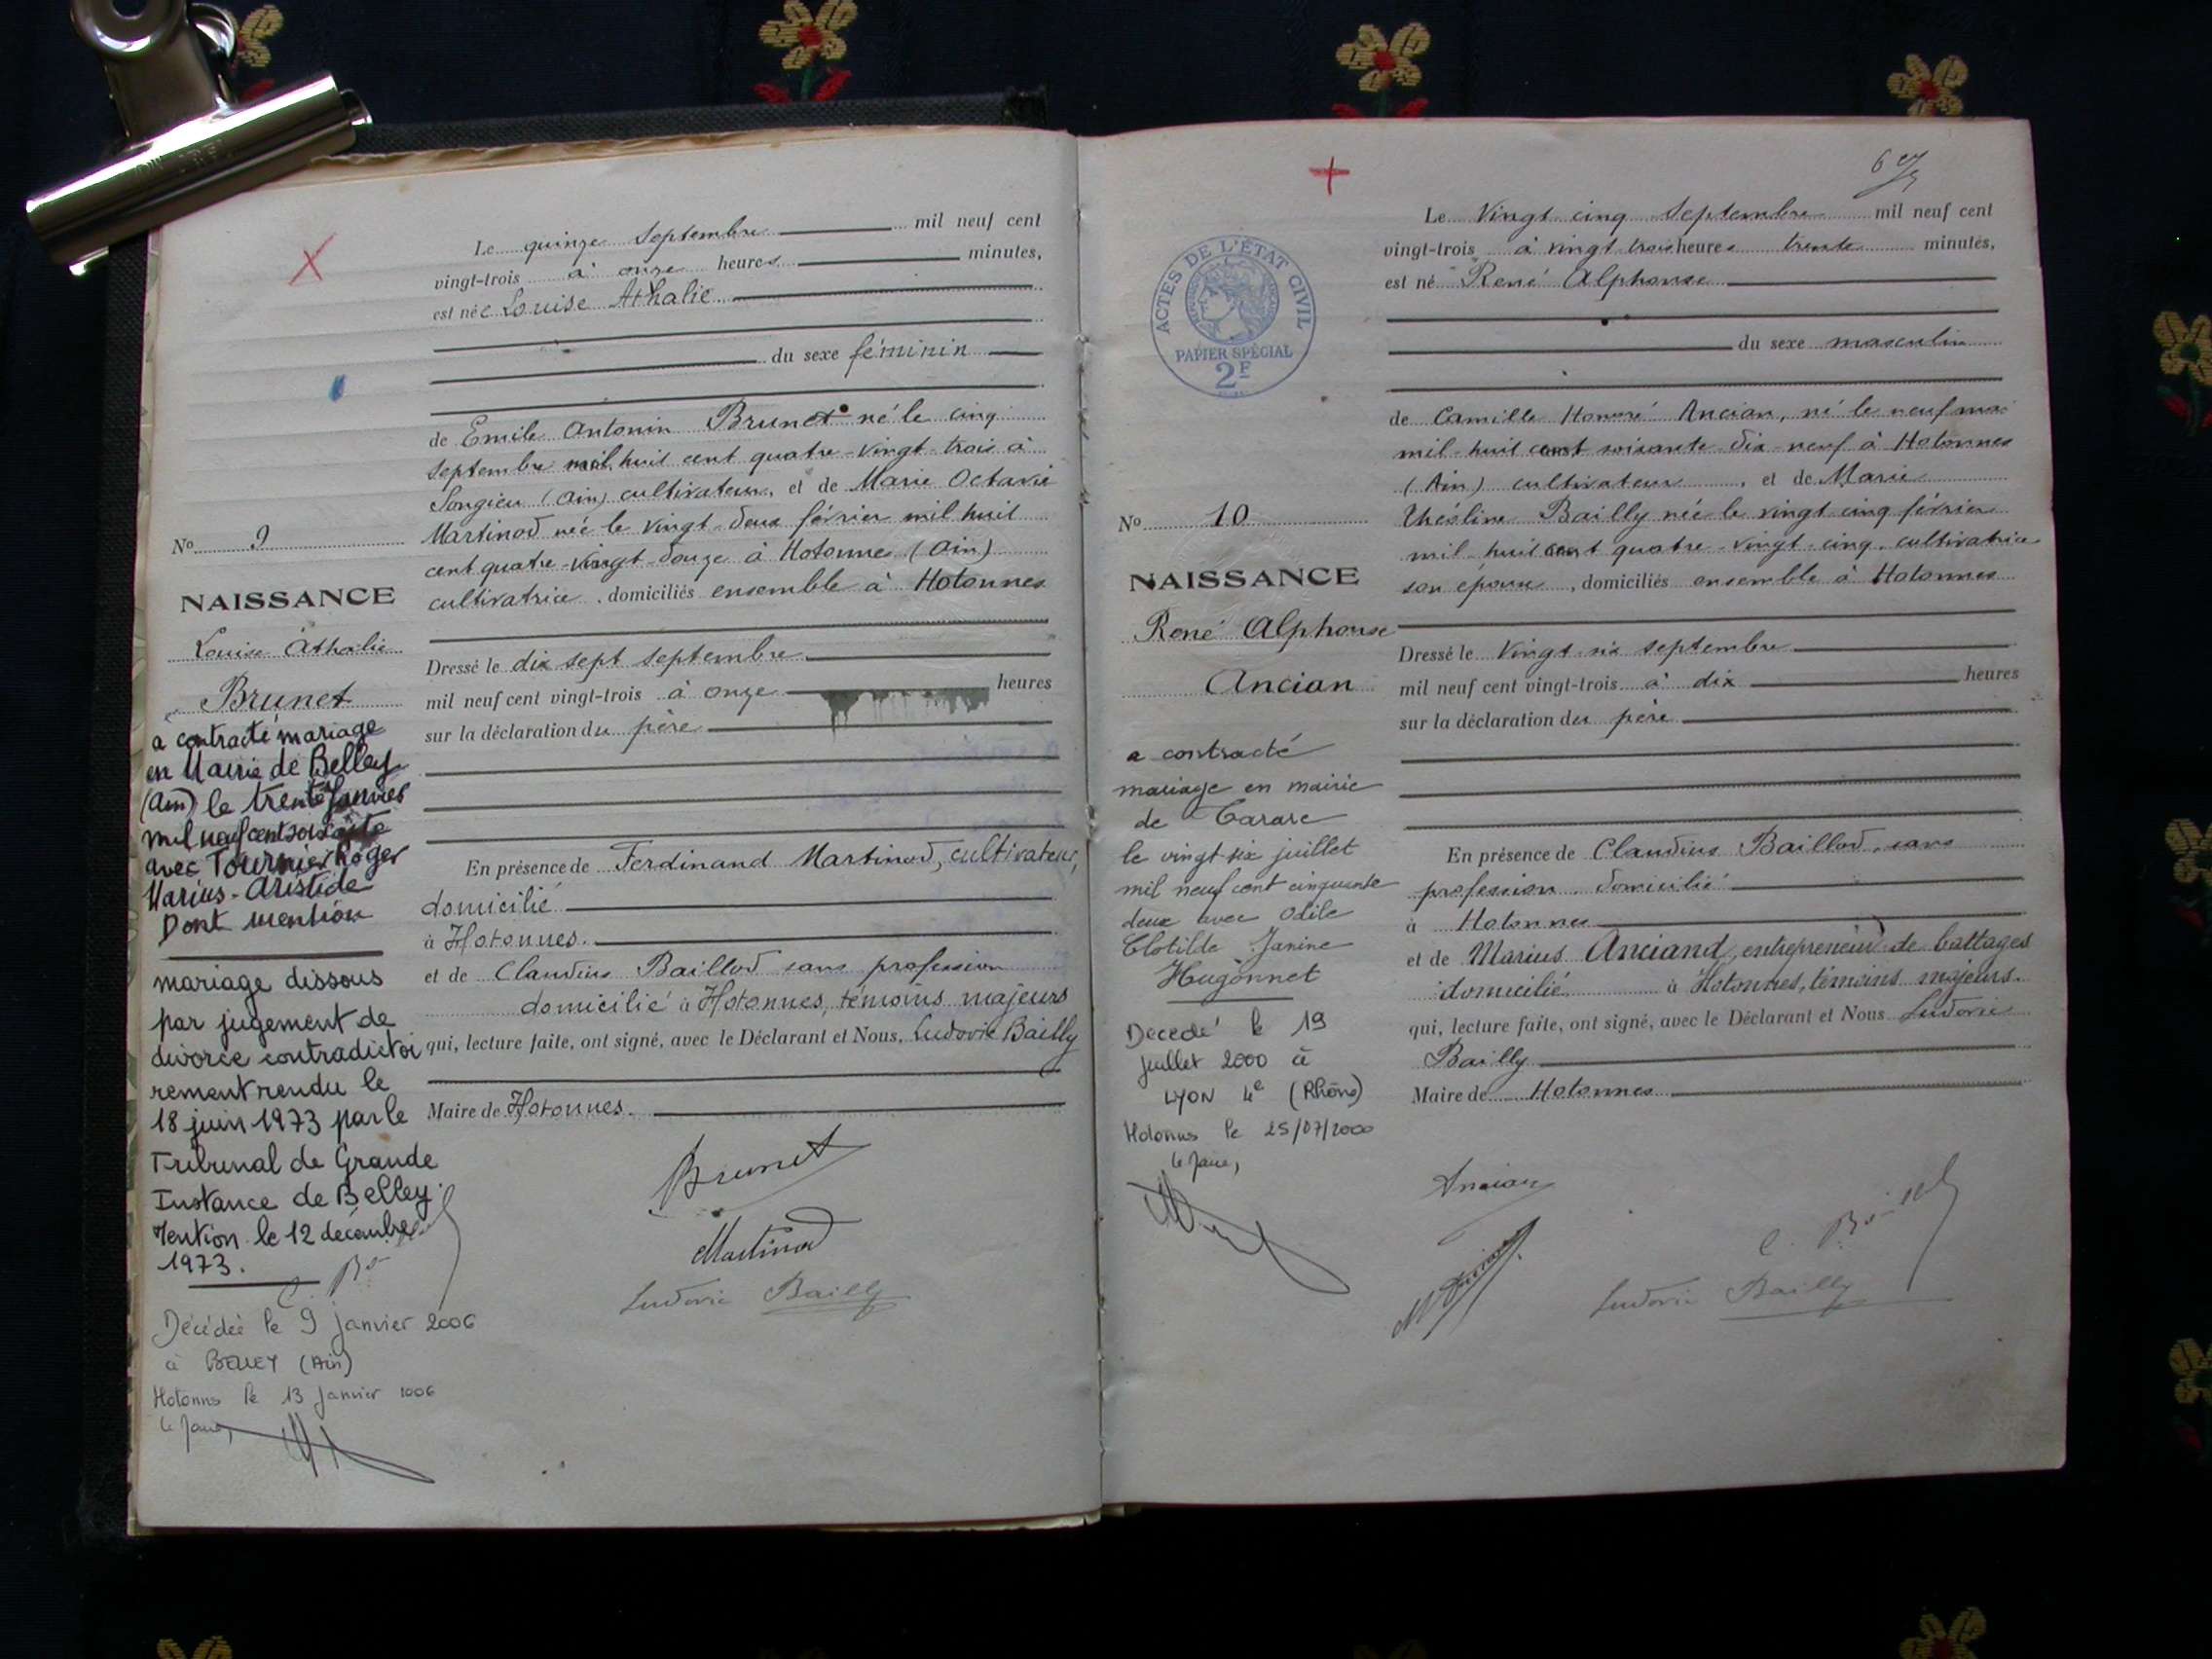 Le quinze septembre mil neuf cent
vingt-trois à onze heures minutes,
est née Louise Athalie
du sexe féminin
de Emile Antonin Brunet né le cinq
septembre mil huit cent quatre-vingt-trois à
Songieu (Ain) cultivateur, et de Marie Octavie
Martinod née le vingt-deux février mil huit
cent quatre-vingt-douze à Hotonnes (Ain)
cultivatrice, domiciliés ensemble à Hotonnes
Dressé le dix sept septembre
mil neuf cent vingt-trois à onze heures
sur la déclaration du père
En présence de Ferdinand Martinod, cultivateur,
domicilié
à Hotonnes.
et de Claudius Baillod sans profession
domicilié à Hotonnes, témoins majeurs
qui, lecture faite, ont signé, avec le Déclarant et Nous, Ludovic Bailly
Maire de Hotonnes.
Brunet
Martinod
Ludovic Bailly
No 9
NAISSANCE
Louise Athalie
Brunet
a contracté mariage
en Mairie de Belley
(Ain) le trente Janvier
mil neuf cent soixante
avec Tournier Roger
Marius-Aristide
Dont mention
mariage dissous
par jugement de
divorce contradictoi
rement rendu le
18 juin 1973 par le
Tribunal de Grande
Instance de Belley.
Mention le 12 décembre
1973.
Décédée le 9 janvier 2006
à BELLEY (Ain)
Hotonnes le 13 janvier 2006
le Maire,
6
Le Vingt cinq Septembre mil neuf cent
vingt-trois à vingt trois heures trente minutes,
est né René Alphonse
du sexe masculin
de Camille Honoré Ancian, né le neuf mai
mil-huit cent soixante-dix-neuf à Hotonnes
(Ain) cultivateur, et de Marie
Théoline Bailly née le vingt cinq février
mil-huit cent quatre-vingt-cinq, cultivatrice
son épouse, domiciliés ensemble à Hotonnes
Dressé le Vingt-six septembre
mil neuf cent vingt-trois à dix heures
sur la déclaration du père
En présence de Claudius Baillod, sans
profession, domicilié
à Hotonnes
et de Marius Anciand, entrepreneur de battages
domicilié à Hotonnes, témoins majeurs.
qui, lecture faite, ont signé, avec le Déclarant et Nous Ludovic
Bailly
Maire de Hotonnes
Ancian
Ludovic Bailly
ACTES DE L'ÉTAT CIVIL
PAPIER SPÉCIAL
2F
No 10
NAISSANCE
René Alphonse
Ancian
a contracté
mariage en mairie
de Tarare
le vingt-six juillet
mil neuf cent cinquante
deux avec Odile
Clotilde Janine
Hugonnet
Décédé le 19
juillet 2000 à
LYON 4e (Rhône)
Hotonnes le 25/07/2000
le Maire,